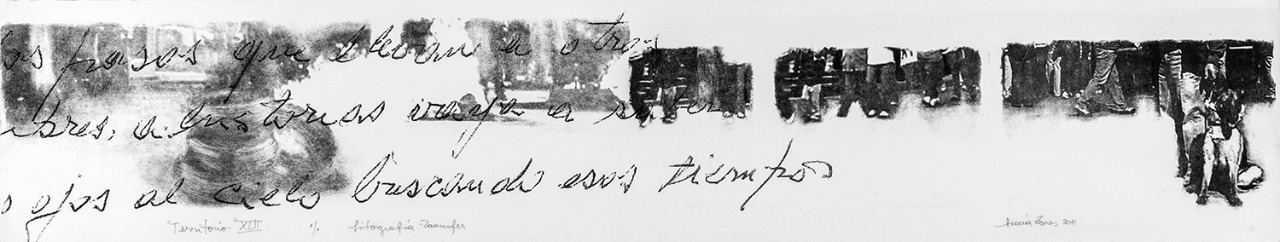 os pasos que llevan a otros
ibres, a historias vaya a saber
s ojos al cielo buscando esos tiempos
"Territorio" XLIII litografía
2011